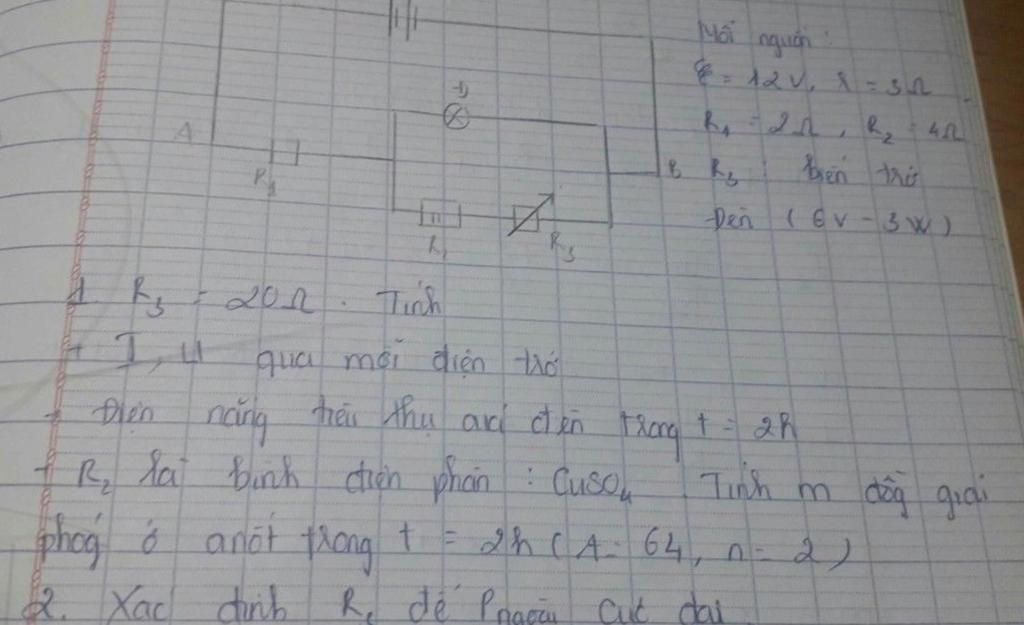 Mỗi nguồn:
ξ = 12V, r = 3Ω
R₁ = 2Ω, R₂ = 4Ω
R₃: biến trở
Đèn (6V - 3W)
Đ
A
B
R₁
R₃
1. R₃ = 20Ω. Tính
+ I, U qua mỗi điện trở
+ Điện năng tiêu thụ của đèn trong t = 2h
+ R₂ là bình điện phân: CuSO₄ Tính m đồg giải
phóg ở anốt trong t = 2h (A = 64, n = 2)
2. Xác định R để Pngoài cực đại